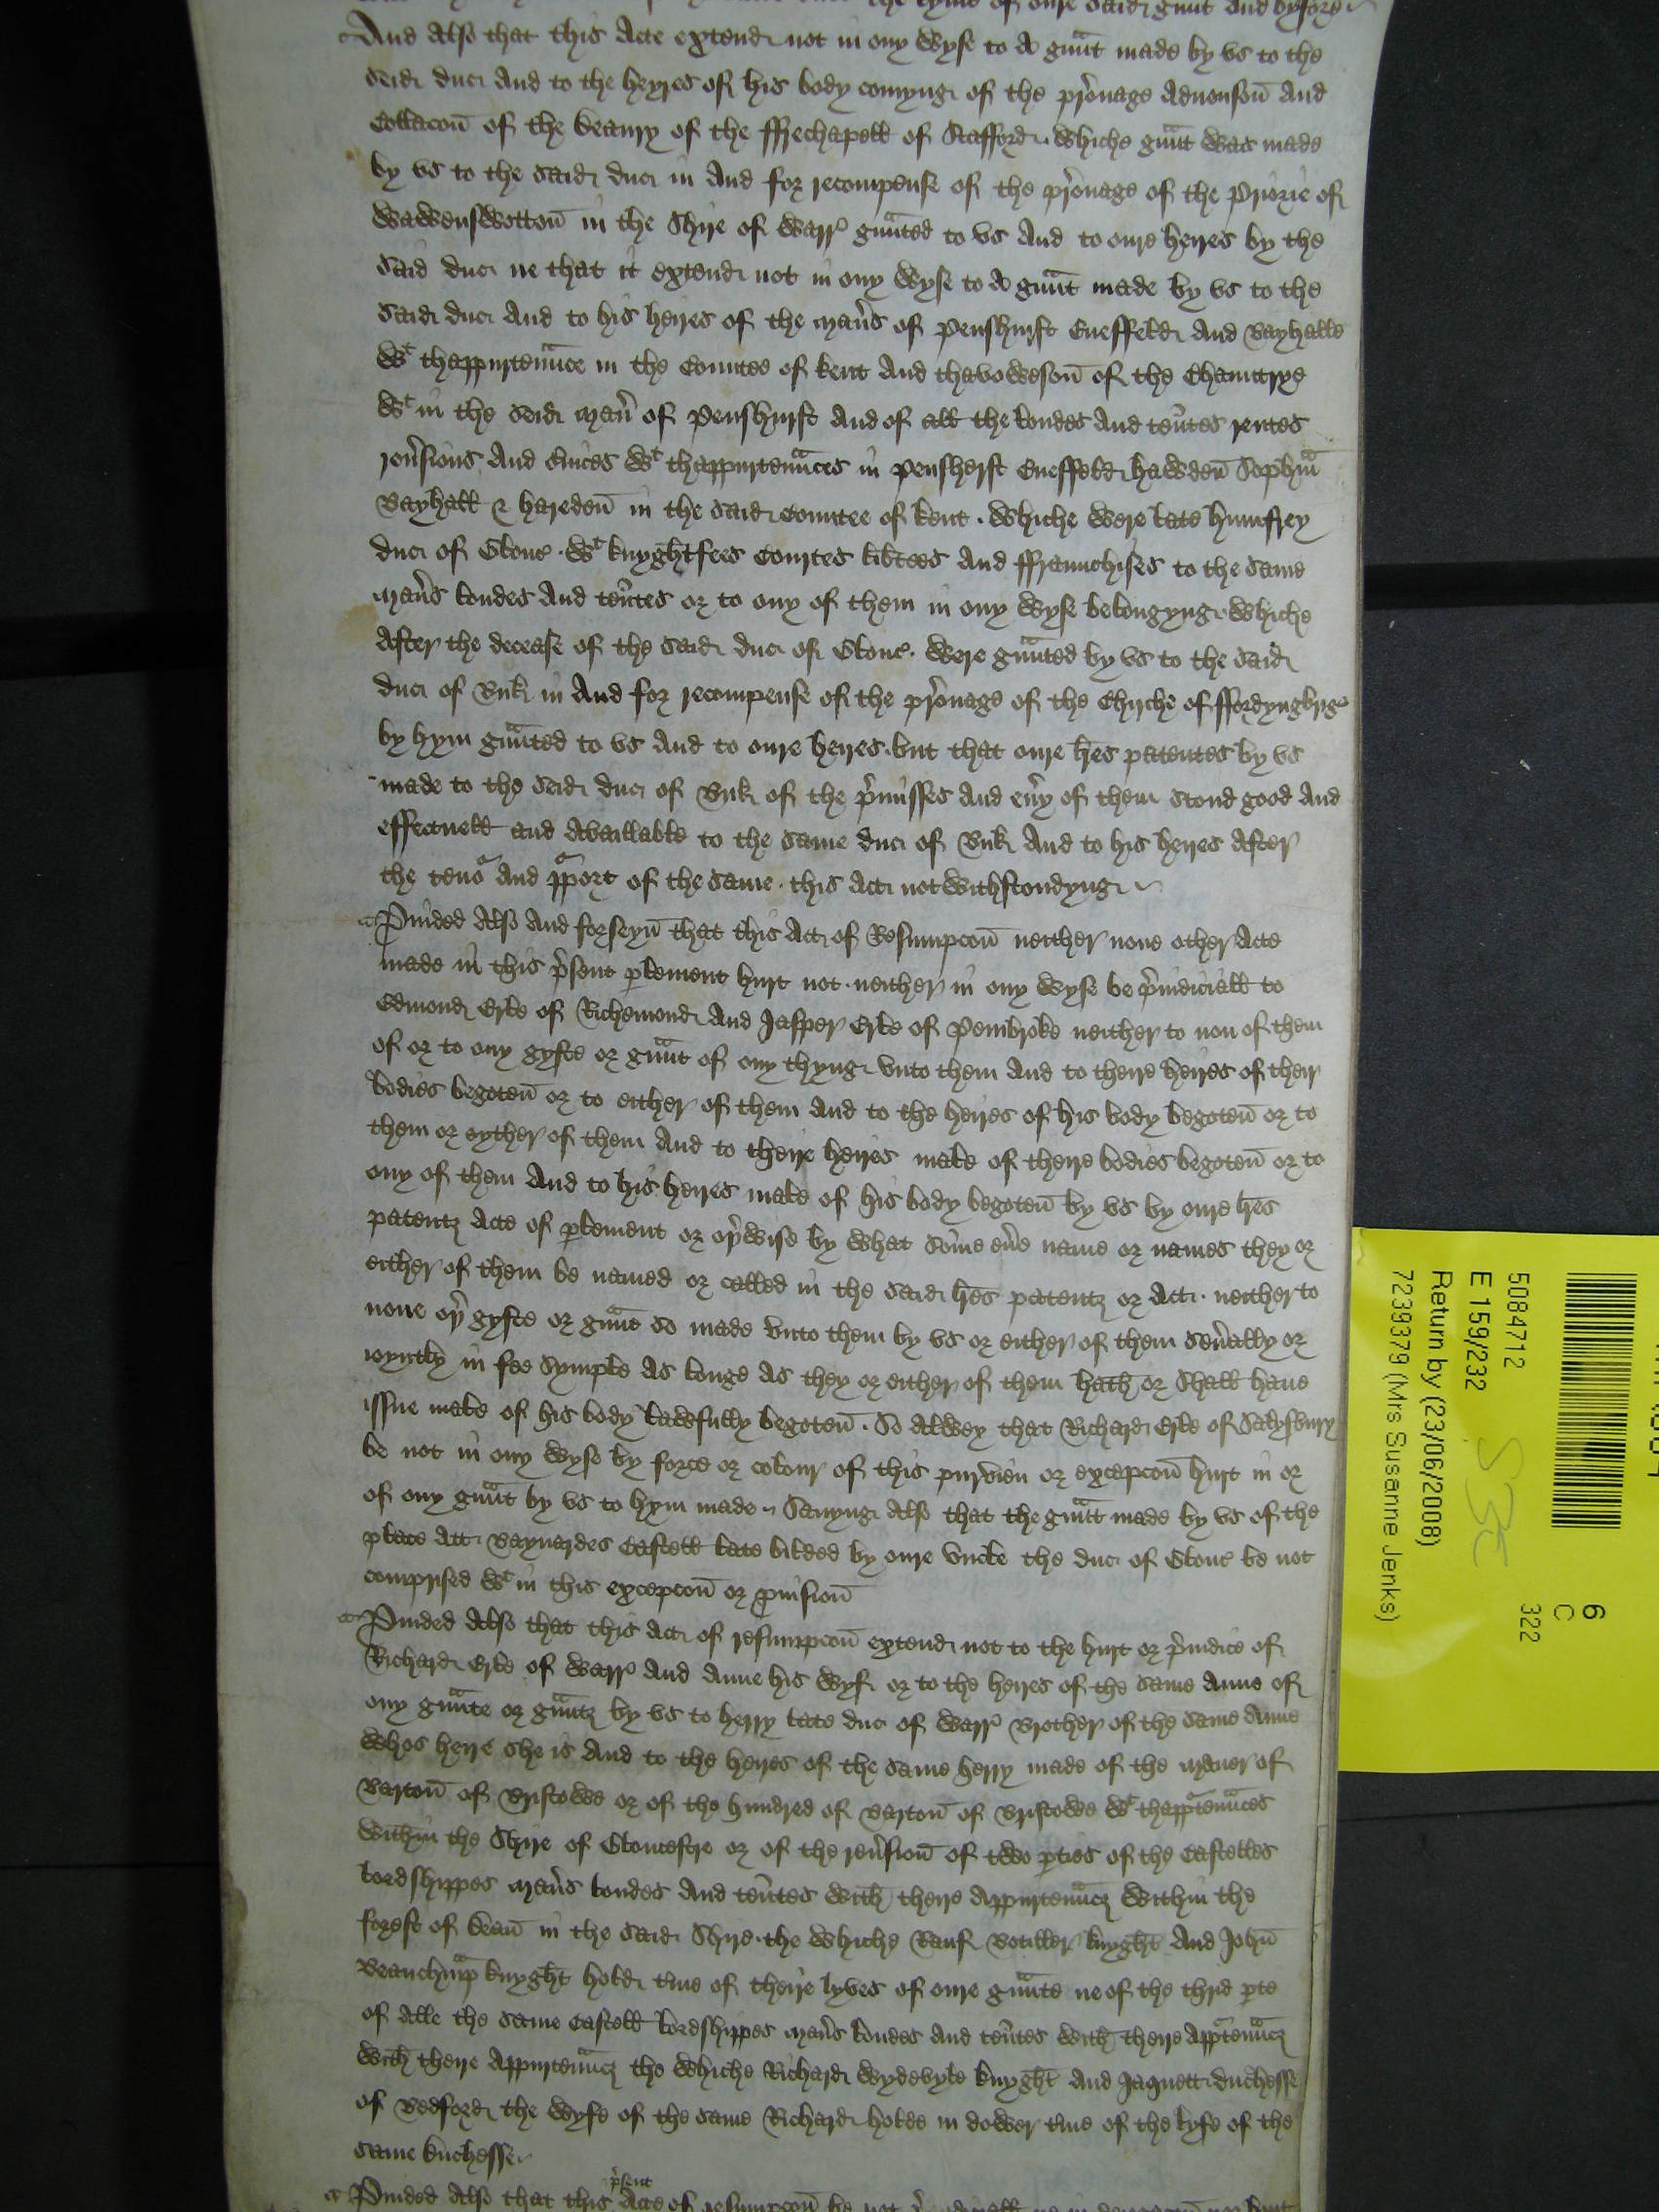 And Also that this Acte extend not in ony wyse to A gunt made by vs to the
seid duc And to the heyres of his body comyng of the pronage Advouson And
Collacon of the deanry of the ffrechapell of Stafford . whiche gunt was made
by vs to the said duc in And for recompense of the pronage of the Priorie of
Wawenswotton in the Shire of Warr gunted to vs And to oure heires by the
said duc ne that it extend not in ony wyse to A gunt made by vs to the
said duc And to his heires of the Maners of Penshurst Eneffeld And Bayhalle
wt thappurtenunce in the Countee of Kent And thavoweson of the Chauntrye
wt in the seid Maner of Penshurst And of all the londes And tentes rentes
rensions And suices wt thappurtenunces in Pensherst Eneffeld hawden Lephm
Bayhall & haredon in the said Countee of Kent . whiche were late humfrey
duc of Glouc . wt knyghtfees Courtes libtees And ffraunchises to the same
Maners londes And tentes or to ony of them in ony wyse belongyng . whiche
After the decease of the said duc of Glouc . were gunted by vs to the said
duc of Buk in And for recompense of the pronage of the Chirche of ffordyngbrge
by hym gunted to vs And to oure heires . but that oure lres patentes by vs
made to the seid duc of Buk of the pmisses And euy of them stond good And
effectuell and Availlable to the same duc of Buk And to his heires After
the teno And pport of the same . this Act notwithstondyng
Puided Also And forseyn that this Act of Resumpcon neither none other Acte
made in this psent plement hurt not . neither in ony wyse be piudiciall to
Edmond Erle of Richemond And Jasper Erle of Pembroke neither to non of them
of or to ony gyfte or gunt of ony thyng vnto them And to theire heires of their
bodies begoten or to either of them And to the heires of his body begoten or to
them or eyther of them And to theire heires male of theire bodies begoten or to
ony of them And to his heires male of his body begoten by vs by oure lres
patentz Acte of plement or oyrwise by what some eue name or names they or
either of them be named or called in the said lres patentz or Act . neither to
none oyr gyfte or gunt so made vnto them by vs or either of them seually or
ioyntly in fee symple As longe As they or either of them hath or shall haue
issue male of his body lawfully begoten . So Alwey that Richard Erle of Salysbury
be not in ony wyse by force or colour of this purvieu or excepcon hurt in or
of ony gunt by vs to hym made . Sauyng Also that the guntt made by vs of the
place Att Baynardes Castell late bilded by oure vncle the duc of Glouc be not
comprised wt in this excepcon or puision
Puided Also that this Act of resumpcon extend not to the hurt or piudice of
Richard Erle of Warr And Anne his wyf or to the heires of the same Anne of
ony gunte or guntz by vs to herry late duc of Warr Brother of the same Anne
whos heire she is And to the heires of the same herry made of the Maner of
Barton of Bristowe or of the hundred of Barton of Bristowe wt thapptenunces
within the Shire of Gloucestre or of the reusion of two pties of the Castelles
lordshippes Maners londes And tentes with theire Appurtenuncz within the
forest of dean in the said Shire . the whiche Rauf Botiller knyght And John
Beauchmp knyght hold time of theire lyves of oure gunte ne of the thrid pte
of Alle the same Castell lordshippes Maners londes And tentes with theire Apptenuncz
with theire Appurtenuncz the whiche Richard Wydevyle knyght And Jaquett duchesse
of Bedford the wyfe of the same Richard holde in dower time of the lyfe of the
same duchesse
psent
Puided Also that this Acte of resumpcon be not
5084712
E 159/232
Return by (23/06/2008)
7239379 (Mrs Susanne Jenks)
6
C
322